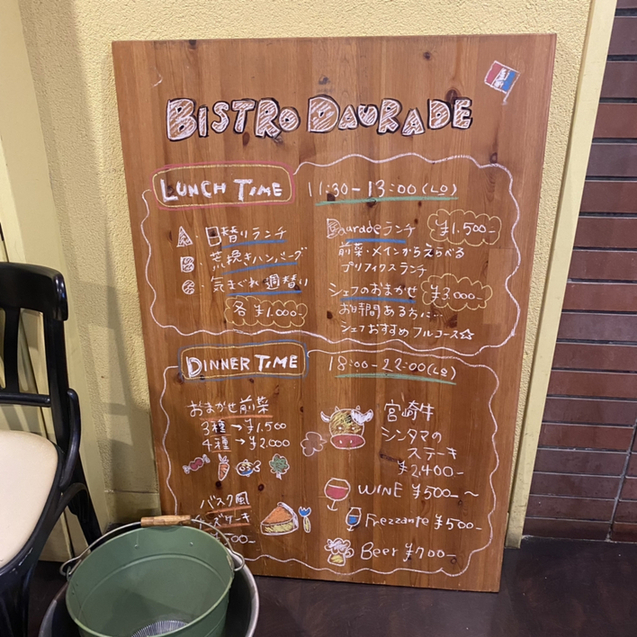 BISTRO DAURADE
LUNCH TIME 11:30-13:00(LO)
A. 日替りランチ
B. 荒挽きハンバーグ
C. 気まぐれ週替り
各¥1.000-
Dauradeランチ ¥1.500-
前菜・メインからえらべる
プリフィクスランチ
シェフのおまかせ ¥3,000-
お時間ある方に…
シェフおすすめフルコース☆
DINNER TIME 18:00-22:00(LO)
おまかせ前菜
3種→¥1.500
4種→¥2,000
バスク風
ズケーキ
00-
宮崎牛
シンタマの
ステーキ
¥2,400-
WINE ¥500-~
Frezzante ¥500-
Beer ¥700-